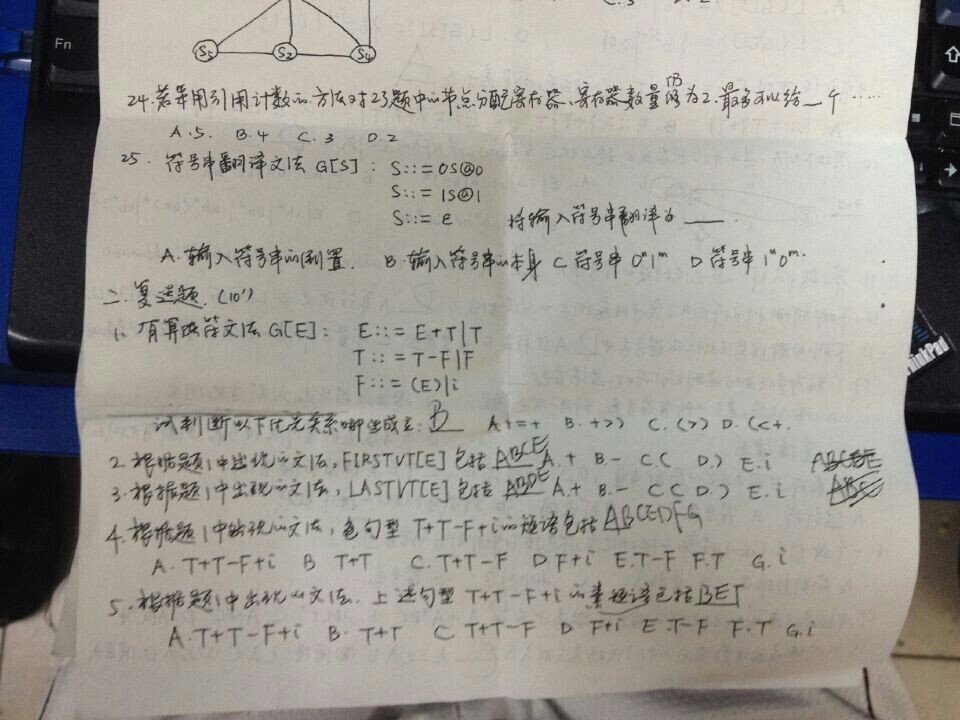 Fn
S5 S2 S4
24. 若果用引用计数的方法对23题中的节点分配寄存器、寄存器数量限为2.最多可以给__个……
A.5. B.4 C.3 D.2
25. 符号串翻译文法 G[S]: S::= 0S@0
S::= 1S@1
S::= e 将输入符号串翻译为____.
A.输入符号串的倒置. B.输入符号串的本身 C 符号串 0ⁿ1ᵐ D 符号串 1ⁿ0ᵐ.
二.复选题.(10')
1. 有算法符文法 G[E]: E::= E+T|T
T::= T-F|F
F::= (E)|i
试判断以下优先关系哪些成立: B A +=+ B. +>) C. (>) D. (<+.
2.根据题1中出现的文法, FIRSTVT[E] 包括 ABCE A.+ B.- C.( D.) E.i
3.根据题1中出现的文法, LASTVT[E] 包括 ABDE A.+ B.- C.( D.) E.i
4.根据题1中出现的文法, 句型 T+T-F+i 的短语包括 ABCEDFG
A. T+T-F+i B T+T C. T+T-F D F+i E.T-F F.T G.i
5.根据题1中出现的文法. 上述句型 T+T-F+i 的素短语包括
A.T+T-F+i B. T+T C T+T-F D. F+i E.T-F F.T G.i
ThinkPad